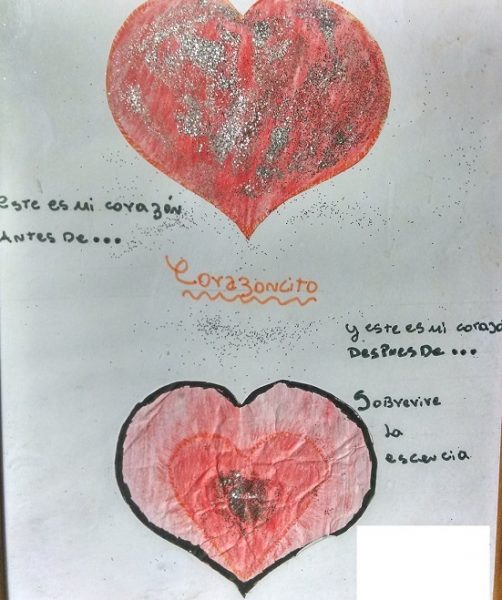 este es mi corazón
ANTES DE...
Corazoncito
y este es mi corazó
DESPUES DE...
SOBREVIVE
la
escencia